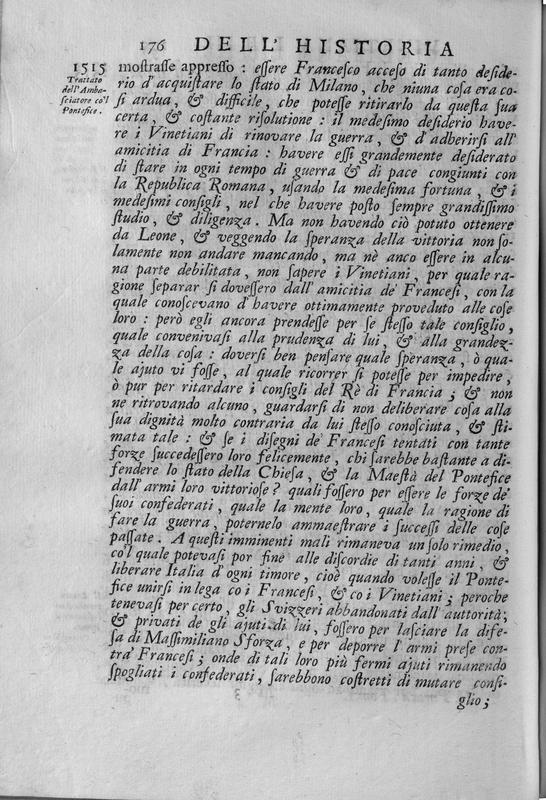 176 DELL' HISTORIA
1515
Trattato
dell' Amba-
ſciatore co'l
Pontefice.
moſtraſſe appreſſo : eſſere Franceſco acceſo di tanto deſide-
rio d' acquiſtare lo ſtato di Milano, che niuna coſa era co-
ſi ardua, & difficile, che poteſſe ritirarlo da queſta ſua
certa, & coſtante riſolutione : il medeſimo deſiderio have-
re i Vinetiani di rinovare la guerra, & d' adherirſi all'
amicitia di Francia : havere eſſi grandemente deſiderato
di ſtare in ogni tempo di guerra & di pace congiunti con
la Republica Romana, uſando la medeſima fortuna, & i
medeſimi conſigli, nel che havere poſto ſempre grandiſſimo
ſtudio, & diligenza. Ma non havendo ciò potuto ottenere
da Leone, & veggendo la ſperanza della vittoria non ſo-
lamente non andare mancando, ma nè anco eſſere in alcu-
na parte debilitata, non ſapere i Vinetiani, per quale ra-
gione ſeparar ſi doveſſero dall' amicitia de' Franceſi, con la
quale conoſcevano d' havere ottimamente proveduto alle coſe
loro : però egli ancora prendeſſe per ſe ſteſſo tale conſiglio,
quale convenivaſi alla prudenza di lui, & alla grandez-
za della coſa : doverſi ben penſare quale ſperanza, ò qua-
le ajuto vi foſſe, al quale ricorrer ſi poteſſe per impedire,
ò pur per ritardare i conſigli del Rè di Francia ; & non
ne ritrovando alcuno, guardarſi di non deliberare coſa alla
ſua dignità molto contraria da lui ſteſſo conoſciuta, & ſti-
mata tale : & ſe i diſegni de' Franceſi tentati con tante
forze ſuccedeſſero loro felicemente, chi ſarebbe baſtante a di-
fendere lo ſtato della Chieſa, & la Maeſtà del Pontefice
dall' armi loro vittorioſe ? quali foſſero per eſſere le forze de'
ſuoi confederati, quale la mente loro, quale la ragione di
fare la guerra, poternelo ammaeſtrare i ſucceſſi delle coſe
paſſate. A queſti imminenti mali rimaneva un ſolo rimedio,
co'l quale potevaſi por fine alle diſcordie di tanti anni, &
liberare Italia d' ogni timore, cioè quando voleſſe il Ponte-
fice unirſi in lega co i Franceſi, & co i Vinetiani ; peroche
tenevaſi per certo, gli Svizzeri abbandonati dall' auttorità,
& privati de gli ajuti di lui, foſſero per laſciare la dife-
ſa di Maſſimiliano Sforza, e per deporre l' armi preſe con-
tra' Franceſi ; onde di tali loro più fermi ajuti rimanendo
ſpogliati i confederati, ſarebbono coſtretti di mutare conſi-
glio ;